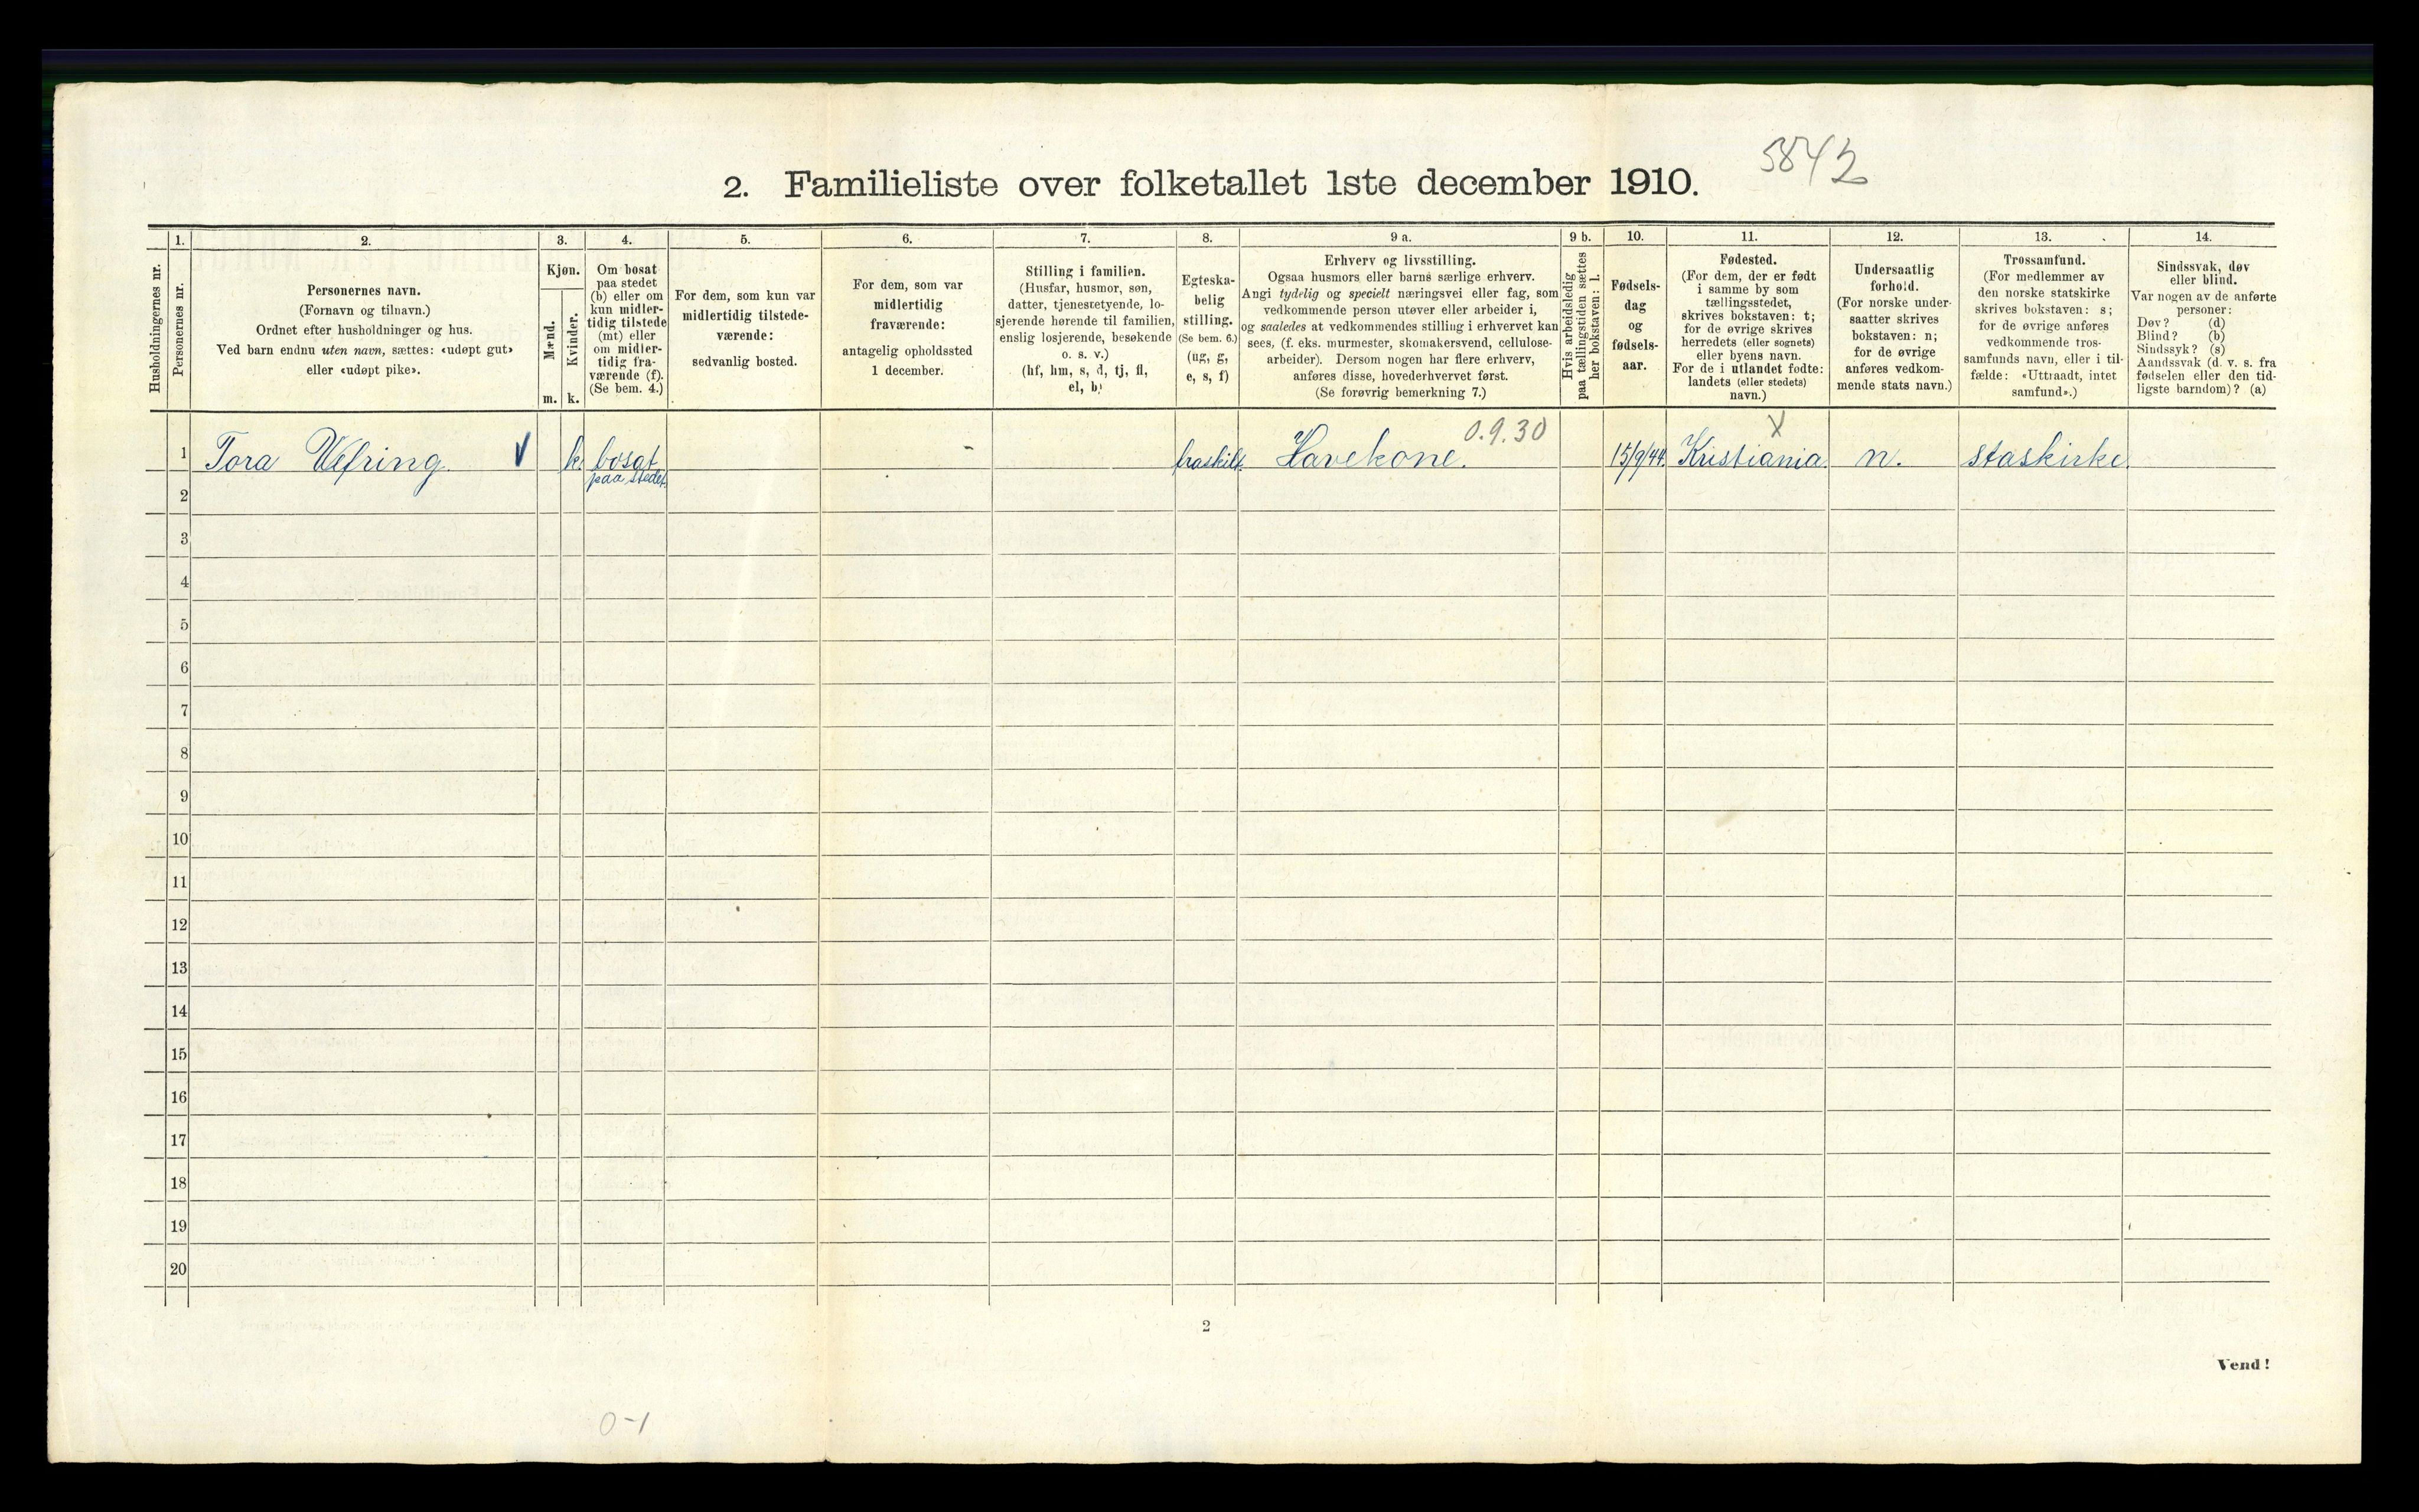 5842
2. Familieliste over folketallet 1ste december 1910.
1. 2. 3. 4. 5. 6. 7. 8. 9 a. 9 b. 10. 11. 12. 13. 14.
Husholdningernes nr.
Personernes nr.
Personernes navn.
(Fornavn og tilnavn.)
Ordnet efter husholdninger og hus.
Ved barn endnu uten navn, sættes: «udøpt gut»
eller «udøpt pike».
Kjøn.
Mænd.
Kvinder.
m. k.
Om bosat
paa stedet
(b) eller om
kun midler-
tidig tilstede
(mt) eller
om midler-
tidig fra-
værende (f).
(Se bem. 4.)
For dem, som kun var
midlertidig tilstede-
værende:
sedvanlig bosted.
For dem, som var
midlertidig
fraværende:
antagelig opholdssted
1 december.
Stilling i familien.
(Husfar, husmor, søn,
datter, tjenestetyende, lo-
sjerende hørende til familien,
enslig losjerende, besøkende
o. s. v.)
(hf, hm, s, d, tj, fl,
el, b)
Egteska-
belig
stilling.
(Se bem. 6.)
(ug, g,
e, s, f)
Erhverv og livsstilling.
Ogsaa husmors eller barns særlige erhverv.
Angi tydelig og specielt næringsvei eller fag, som
vedkommende person utøver eller arbeider i,
og saaledes at vedkommendes stilling i erhvervet kan
sees, (f. eks. murmester, skomakersvend, cellulose-
arbeider). Dersom nogen har flere erhverv,
anføres disse, hovederhvervet først.
(Se forøvrig bemerkning 7.)
Hvis arbeidsledig
paa tællingstiden sættes
her bokstaven: l.
Fødsels-
dag
og
fødsels-
aar.
Fødested.
(For dem, der er født
i samme by som
tællingsstedet,
skrives bokstaven: t;
for de øvrige skrives
herredets (eller sognets)
eller byens navn.
For de i utlandet fødte:
landets (eller stedets)
navn.)
Undersaatlig
forhold.
(For norske under-
saatter skrives
bokstaven: n;
for de øvrige
anføres vedkom-
mende stats navn.)
Trossamfund.
(For medlemmer av
den norske statskirke
skrives bokstaven: s;
for de øvrige anføres
vedkommende tros-
samfunds navn, eller i til-
fælde: «Uttraadt, intet
samfund».)
Sindssvak, døv
eller blind.
Var nogen av de anførte
personer:
Døv? (d)
Blind? (b)
Sindssyk? (s)
Aandssvak (d. v. s. fra
fødselen eller den tid-
ligste barndom)? (a)
0.9.30 X
1 Tora Vefring. V k. bosat fraskilt. Havekone. 15/9/44. Kristiania. n. staskirke.
paa stedet.
2
3
4
5
6
7
8
9
10
11
12
13
14
15
16
17
18
19
20
2
Vend!
0-1